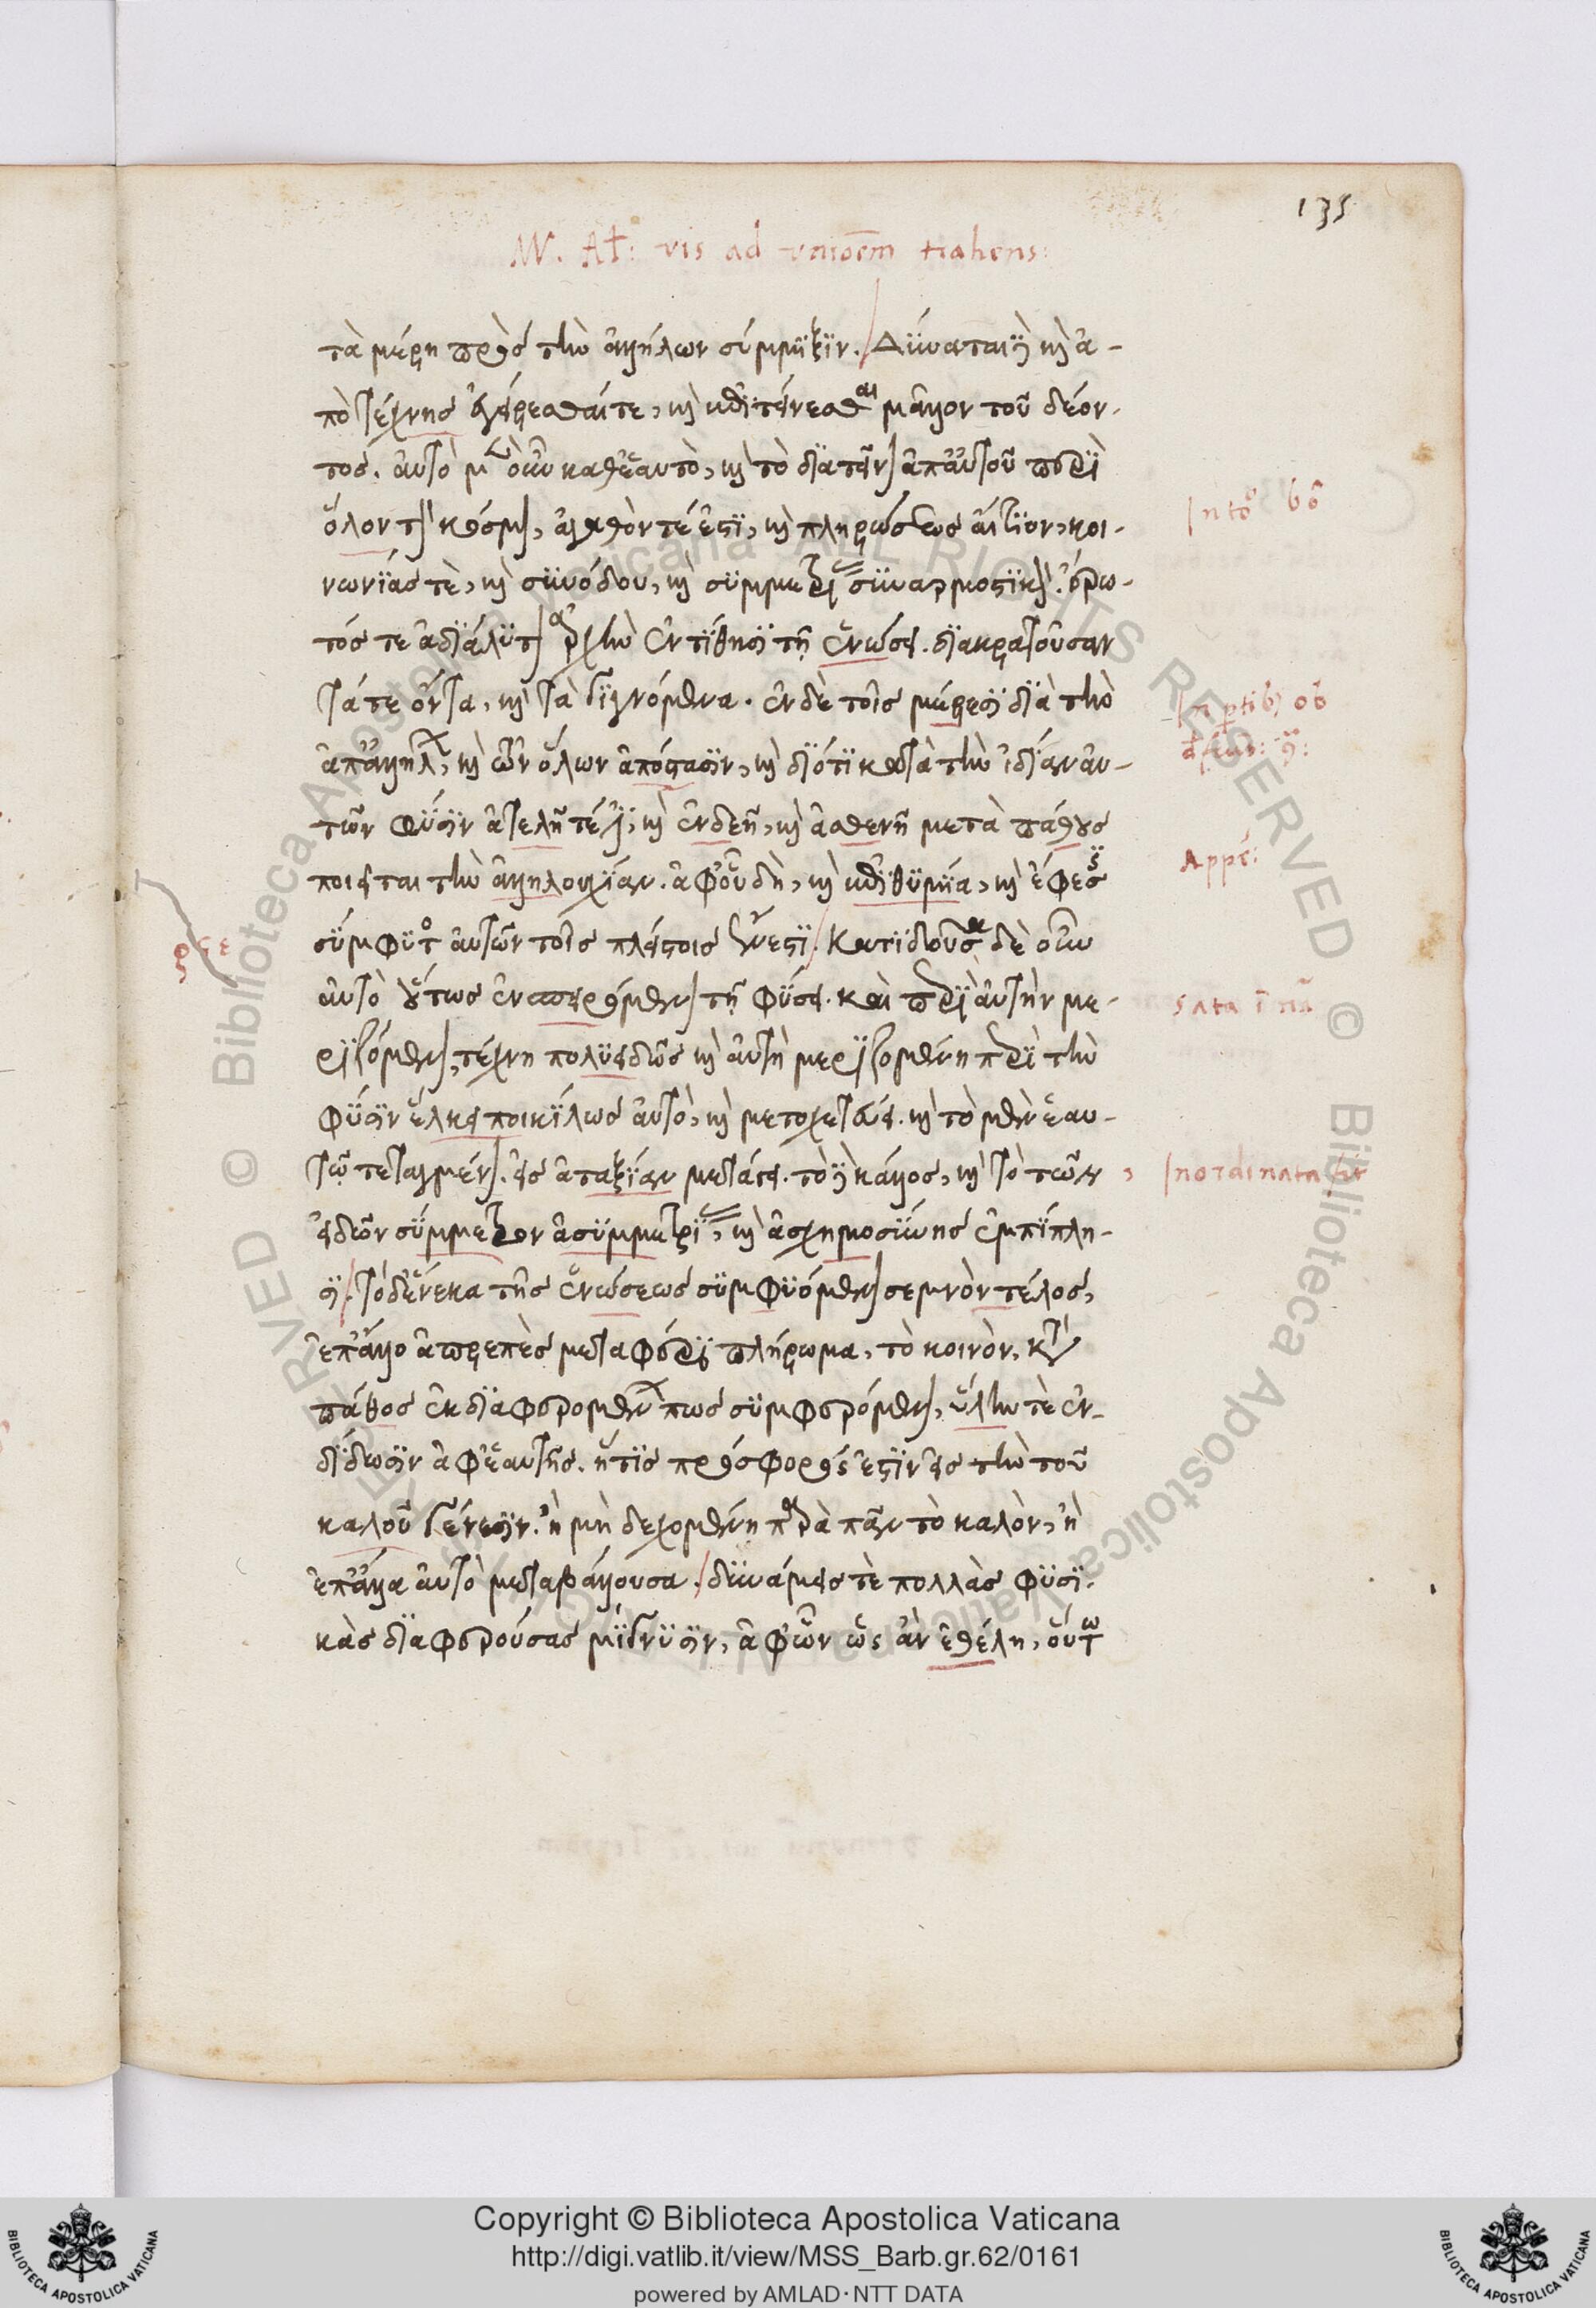 135
τὰ μέρη πρὸς τὴν ἀλλήλων σύμμιξιν. Δύναται δὲ καὶ ἀ-
πὸ τέχνης ἐγείρεσθαί τε, καὶ ἐπιτείνεσθαι μᾶλλον τοῦ δέον-
τος. αὐτὸ μὲν οὖν καθ' ἑαυτὸ, καὶ τὸ διατεῖνον ἀπ' αὐτοῦ περὶ
ὅλον τὸν κόσμον, ἀγαθόν τέ ἐστι, καὶ πληρώσεως αἴτιον, κοι-
νωνίας τὲ, καὶ συνόδου, καὶ συμμετρίας συναρμοστικὸν. ἔρω-
τός τε ἀδιάλυτον ἀρχὴν ἐντίθησι τῇ ἑνώσει. διακρατοῦσαν
τά τε ὄντα, καὶ τὰ γιγνόμενα. ἐν δὲ τοῖς μέρεσι διὰ τὴν
ἀπ' ἀλλήλων, καὶ τῶν ὅλων ἀπόστασιν, καὶ διότι κατὰ τὴν ἰδίαν αὐ-
τῶν φύσιν ἀτελῆ τέ ἐστι, καὶ ἐνδεῆ, καὶ ἀσθενῆ μετὰ πάθους
ποιεῖται τὴν ἀλληλουχίαν. ἀφ' οὗ δὴ, καὶ ἐπιθυμία, καὶ ἔφεσις
σύμφυτος αὐτῶν τοῖς πλείστοις ἔνεστι. Κατιδοῦσα δὲ οὖν
αὐτὸ οὕτως ἐνσπειρόμενον τῇ φύσει. καὶ περὶ αὐτὴν με-
ριζόμενον, τέχνη πολυειδῶς καὶ αὐτὴ μεριζομένη περὶ τὴν
φύσιν ἕλκει ποικίλως αὐτὸ, καὶ μετοχετεύει. καὶ τὸ μὲν ἑαυ-
τῷ τεταγμένον. εἰς ἀταξίαν μετάγει. τὸ δὲ κάλλος, καὶ τὸ τῶν
εἰδῶν σύμμετρον ἀσυμμετρίας, καὶ ἀσχημοσύνης ἐμπίπλη-
σι. τὸ δ' ἕνεκα τῆς ἑνώσεως συμφυόμενον σεμνὸν τέλος,
ἐπ' ἄλλο ἀπρεπὲς μεταφέρει πλήρωμα, τὸ κοινὸν, κατὰ
πάθος ἐκ διαφερομένων πως συμφερόμενον, ὕλην τὲ ἐν-
δίδωσιν ἀφ' ἑαυτῆς. ἥτις πρόσφορός ἐστιν εἰς τὴν τοῦ
καλοῦ γένεσιν. ἢ μὴ δεχομένη παρὰ πᾶν τὸ καλὸν, ἢ
ἐπ' ἄλλα αὐτὸ μεταβάλλουσα. δυνάμεις τὲ πολλὰς φυσι-
κὰς διαφερούσας μίγνυσιν, ἀφ' ὧν ὡς ἂν ἐθέλῃ, οὕτω
Appē:
sata ī nā
Inordinata
Copyright © Biblioteca Apostolica Vaticana
http://digi.vatlib.it/view/MSS_Barb.gr.62/0161
powered by AMLAD·NTT DATA